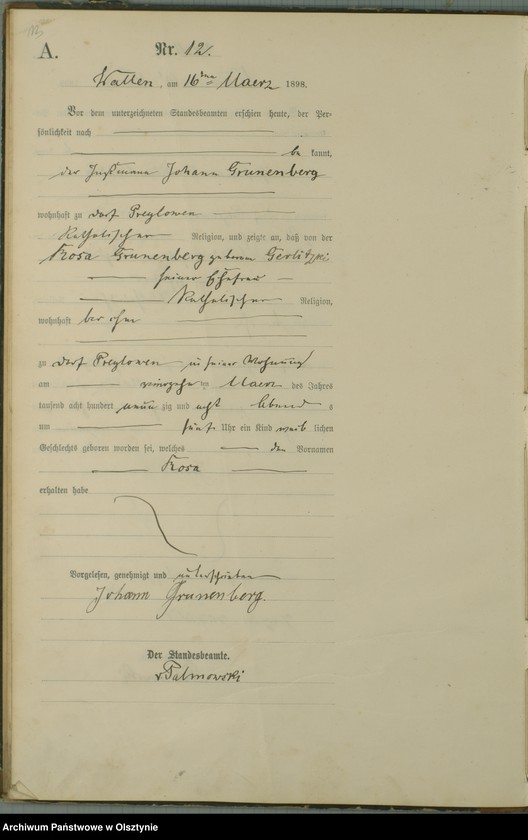 12.
A. Nr. 12.
Wallen, am 16ten Maerz 1898.
Vor dem unterzeichneten Standesbeamten erschien heute, der Per-
sönlichkeit nach
be kannt,
der Instmann Johann Grunenberg
wohnhaft zu dorf Preylowen
Katholischer Religion, und zeigte an, daß von der
Rosa Grunenberg geborenen Gerlitzki
seiner Ehefrau
Katholischer Religion,
wohnhaft bei ihm
zu dorf Preylowen in seiner Wohnung
am vierzehn ten Maerz des Jahres
tausend acht hundert neun zig und acht Abend s
um fünf Uhr ein Kind weib lichen
Geschlechts geboren worden sei, welches den Vornamen
Rosa
erhalten habe
Vorgelesen, genehmigt und unterschrieben
Johann Grunenberg.
Der Standesbeamte.
vPalmowski
Archiwum Państwowe w Olsztynie